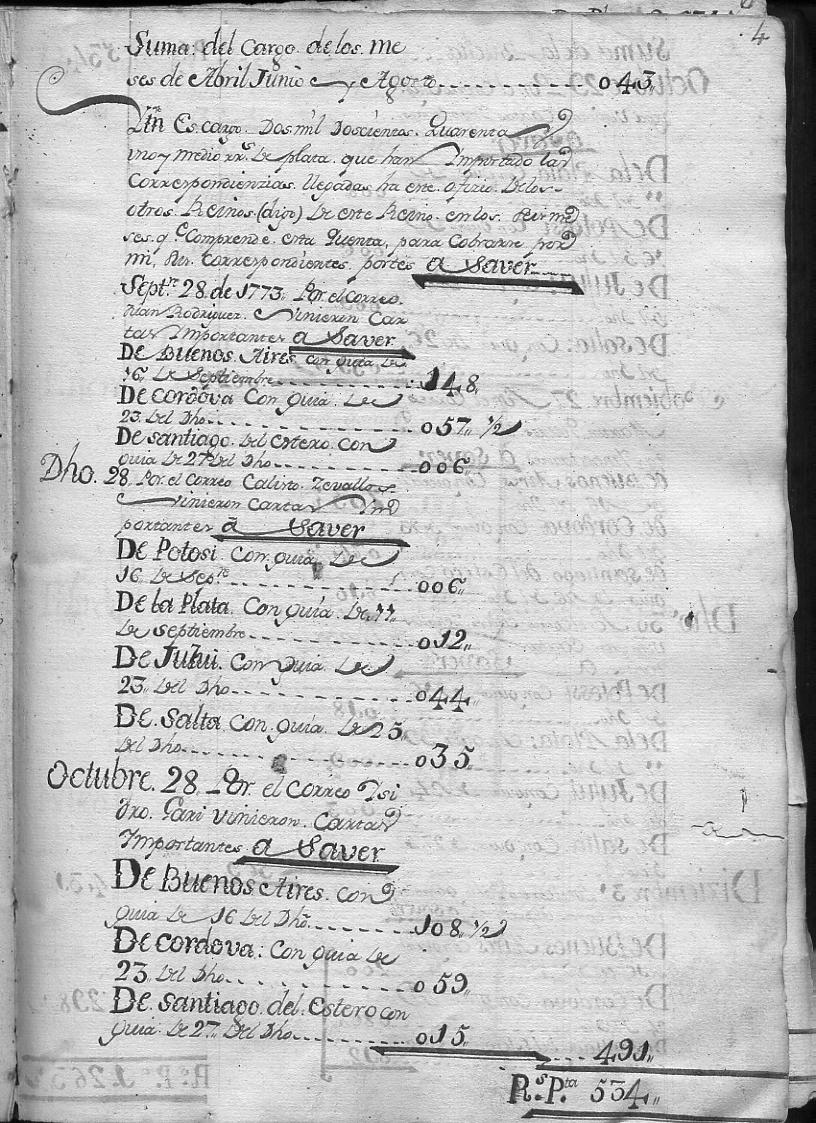 4
Suma del Cargo de los me
ses de Abril Junio y Agosto 043,,
Ytn Es cargo Dos mil Doscientos Quarenta
uno y medio rrs. de plata que han Importado las
Correspondienzias llegadas ha este ofizio de los
otros Reinos (digo) de este Reino en los seis me
ses q.e Comprende esta Quenta, para Cobrarse por
mi, sus Correspondientes portes a Saver
Septre. 28 de 1773. Por el Correo
Juan Rodriguez vinieron Car
tas Importantes a Saver
De Buenos Aires con guia de
16 de Septiembre 148,,
De Cordova Con guia de
23 del Dho 057,, 1/2
De Santiago del Estero con
guia de 27 del Dho 006,,
Dho. 28. Por el Correo Calisto Zevallos
vinieron Cartas Im
portantes a Saver
De Potosi Con guia de
16 de Septe 006,,
De la Plata Con guia de 11
de Septiembre 012,,
De Jujui Con Guia de
23,, del Dho 044,,
De Salta Con guia de 25,,
del Dho 035
Octubre. 28. Por el Correo Isi
dro. Gari vinieron Cartas
Importantes a Saver
De Buenos Aires con
guia de 16 del Dho 108,, 1/2
De Cordova: Con guia de
23,, del Dho 059
De Santiago del Estero con
guia de 27,, del Dho 015,,
491,,
R.s P.ta 534,,